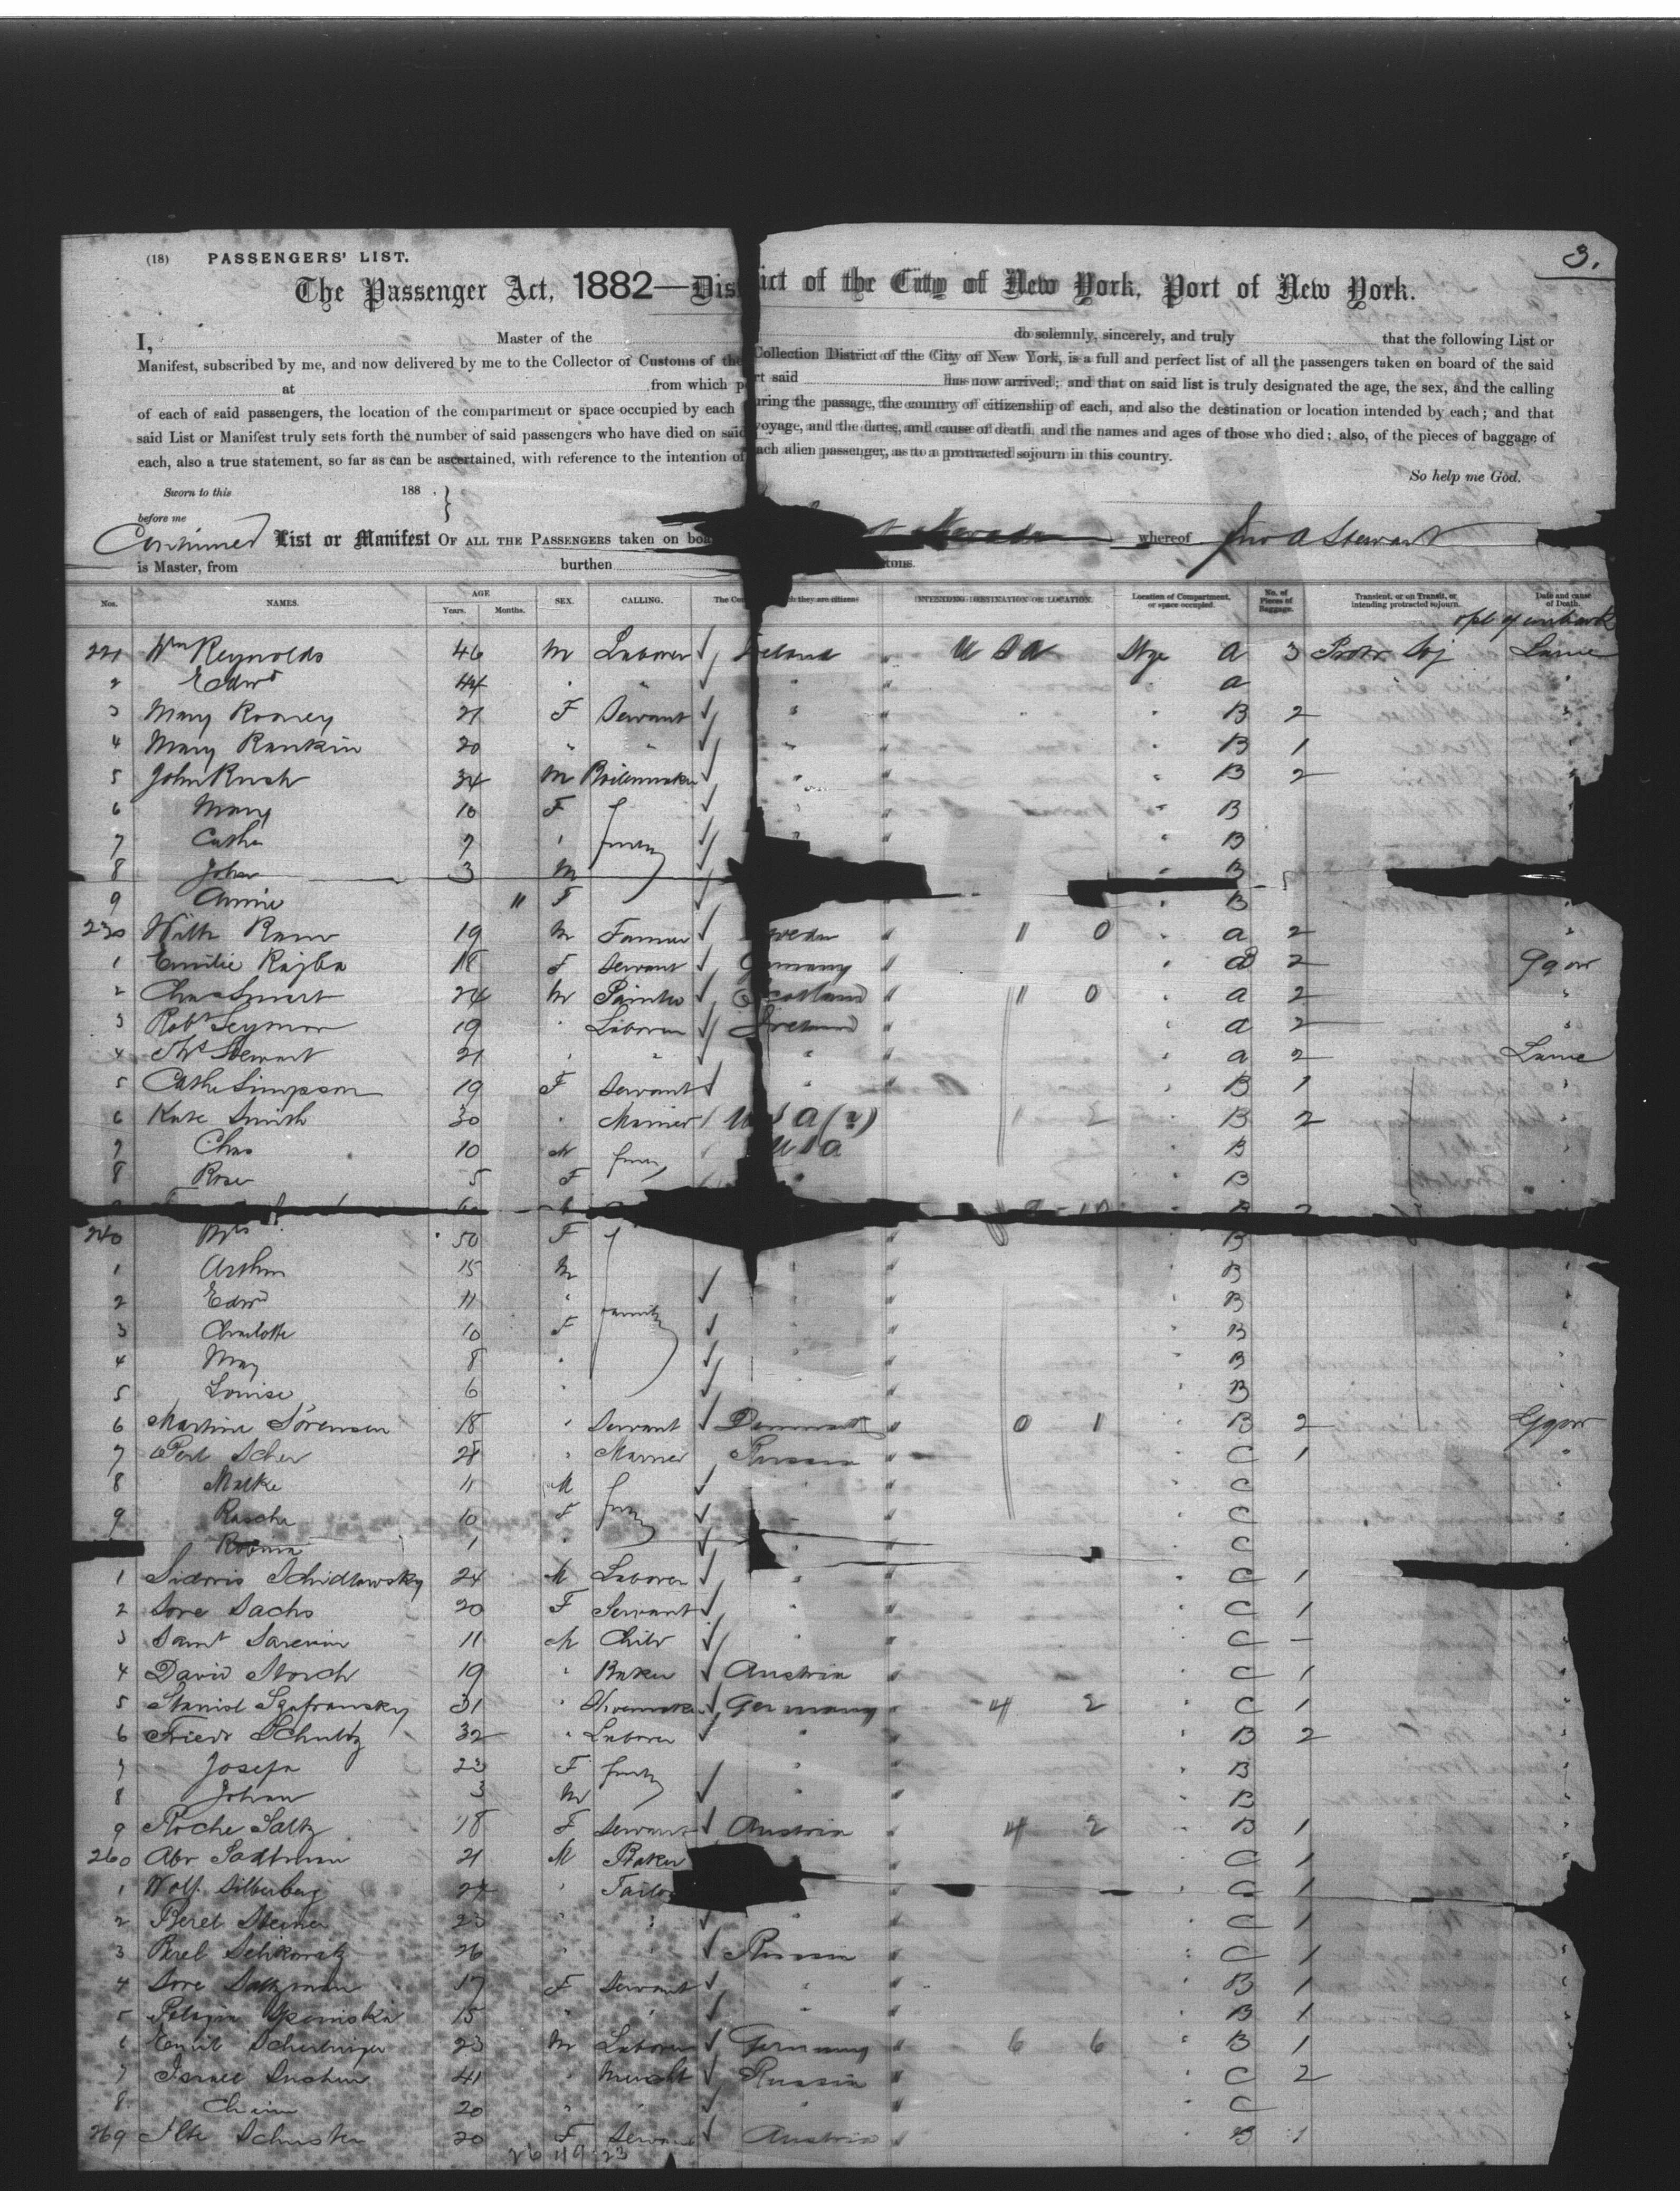 3.
(18) PASSENGERS' LIST.
The Passenger Act, 1882—District of the City of New York, Port of New York.
I, Master of the do solemnly, sincerely, and truly that the following List or
Manifest, subscribed by me, and now delivered by me to the Collector of Customs of the Collection District of the City of New York, is a full and perfect list of all the passengers taken on board of the said
at from which port said has now arrived; and that on said list is truly designated the age, the sex, and the calling
of each of said passengers, the location of the compartment or space occupied by each during the passage, the country of citizenship of each, and also the destination or location intended by each; and that
said List or Manifest truly sets forth the number of said passengers who have died on said voyage, and the dates, and cause of death, and the names and ages of those who died; also, of the pieces of baggage of
each, also a true statement, so far as can be ascertained, with reference to the intention of each alien passenger, as to a protracted sojourn in this country.
So help me God.
Sworn to this 188
before me
Continued List or Manifest OF ALL THE PASSENGERS taken on boa Nevada whereof Jno A Stewart
is Master, from burthen tons.
Nos. NAMES. AGE Years. Months. SEX. CALLING. The Co h they are citizens INTENDING DESTINATION OR LOCATION. Location of Compartment, or space occupied. No. of Pieces of Baggage. Transient, or on Transit, or intending protracted sojourn. Date and cause of Death.
221 Wm Reynolds 46 M Laborer Ireland " U S A Stge A 3 Protr Soj Larne
2 Edwd 44 " " " A
3 Mary Rooney 21 F Servant " B 2
4 Mary Rankin 20 " " " B 1
5 John Rush 34 M Boilermaker " B 2
6 Mary 10 F B
7 Cathe 7 " family B
8 John 3 M B
9 Annie 11 F B
230 Wilh 19 M Farmer weden " 11 0 A 2
1 Emilie Rajba 18 F Servant Germany " 2 Ggow
2 Chas Smart 24 M Painter Scotland " 11 0 A 2 "
3 Robt Seymor 19 " Laborer Ireland A 2
4 Stewart 21 " " " A 2 Larne
5 Cathe Simpson 19 F Servant " B 1 "
6 Kate Smith 30 " Married U S A (2) 1 2 B 2
7 Chas 10 M family U S A B
8 Rose 5 F B
240 50 F B
1 Arthur 15 M B
2 Edwd 11 " family B
3 Charlotte 10 F B
4 May 8 " B
5 Louise 6 " B
6 Martine Sörensen 18 " Servant Denmark " 0 1 B 2 Ggow
7 Perl Scher 28 " Married Russia " C 1 "
8 Malke 11 M C
9 Rascha 10 F family C
1 " C
1 Schidlowsky 24 M Laborer " C 1
2 Sore Sachs 20 F Servant " C 1
3 Saml 11 M Child " C –
4 David Storch 19 " Baker Austria C 1
5 Stanisl Szafransky 31 " Shoemaker Germany " 4 2 C 1
6 Friedr Schultz 32 " Laborer " B 2
7 Josefa 23 F family B
8 Johan 3 M " B
9 Roche Saltz 18 F Servant Austria 4 2 B 1
260 Abr 21 M Baker C 1
1 Wolf Silberberg 24 " Tailor C 1
2 Berel Steiner 23 " " C 1
3 Berel Selikowitz 26 " " Russia C 1
4 Sore Saltzman 17 F Servant " B 1
5 15 " " " B 1
6 23 M Laborer Germany " 6 6 B 1
7 Israel 41 " Mercht Russia C 2
8 Chaim 20 " " " C
269 Schuster 20 F Servant Austria B 1
26 49 23